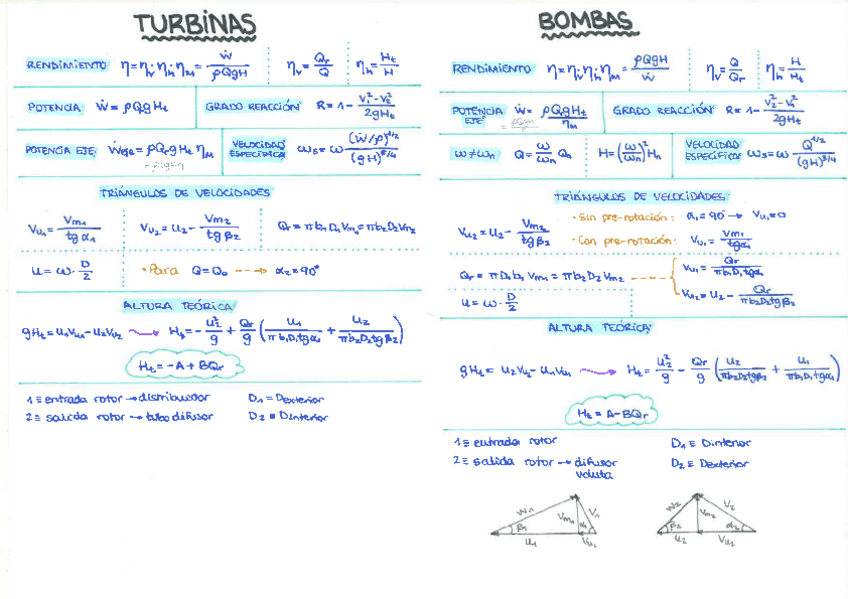 TURBINAS
RENDIMIENTO η = ηv·ηh·ηM = Ẇ/ρQgH   ηv = Qr/Q   ηh = Ht/H
POTENCIA Ẇ = ρQrgHt   GRADO REACCIÓN R = 1 - (V1² - V2²)/2gHt
POTENCIA EJE: Ẇeje = ρQrgHt ηM   VELOCIDAD ESPECÍFICA ωs = ω (Ẇ/ρ)^1/2/(gH)^5/4
TRIÁNGULOS DE VELOCIDADES
Vu1 = Vm1/tgα1   Vu2 = u2 - Vm2/tgβ2   Qr = πb1D1Vm1 = πb2D2Vm2
u = ω·D/2   • Para Q = Q0 ---→ α2 = 90°
ALTURA TEÓRICA
gHt = u1Vu1 - u2Vu2 → Ht = -u2²/g + Qr/g (u1/πb1D1tgα1 + u2/πb2D2tgβ2)
Ht = -A + BQr
1 ≡ entrada rotor → distribuidor   D1 ≡ Dexterior
2 ≡ salida rotor → tubo difusor   D2 ≡ Dinterior
BOMBAS
RENDIMIENTO η = ηv·ηh·ηM = ρQgH/Ẇ   ηv = Q/Qr   ηh = H/Ht
POTENCIA EJE Ẇ = ρQrgHt/ηM   GRADO REACCIÓN R = 1 - (V2² - V1²)/2gHt
ω ≠ ωn   Q = ω/ωn Qn   H = (ω/ωn)² Hn   VELOCIDAD ESPECÍFICA ωs = ω Q^1/2/(gH)^3/4
TRIÁNGULOS DE VELOCIDADES
Vu2 = u2 - Vm2/tgβ2   • Sin pre-rotación: α1 = 90° → Vu1 = 0
• Con pre-rotación: Vu1 = Vm1/tgα1
Qr = πD1b1Vm1 = πb2D2Vm2 ---- Vu1 = Qr/πb1D1tgα1
u = ω·D/2   Vu2 = u2 - Qr/πb2D2tgβ2
ALTURA TEÓRICA
gHt = u2Vu2 - u1Vu1 → Ht = u2²/g - Qr/g (u2/πb2D2tgβ2 + u1/πb1D1tgα1)
Ht = A - BQr
1 ≡ entrada rotor   D1 ≡ Dinterior
2 ≡ salida rotor → difusor   D2 ≡ Dexterior
voluta
W1 Vm1 V1   W2 Vm2 V2
β1 α1   β2 α2
u1 Vu1   u2 Vu2